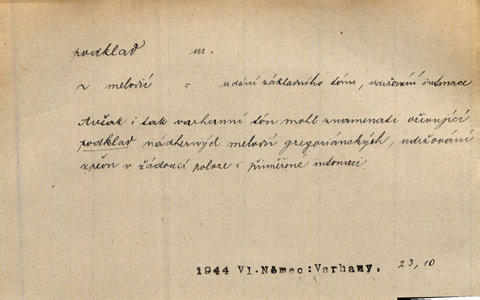 podklad m.
z melodií = udání základního tónu, udržování intonace
Avšak i tak varhanní tón mohl znamenati oživující
podklad nádherných melodií gregoriánských, udržování
zpěvu v žádoucí poloze i přiměřené intonaci.
1944 Vl.Němec:Varhany, 23,10